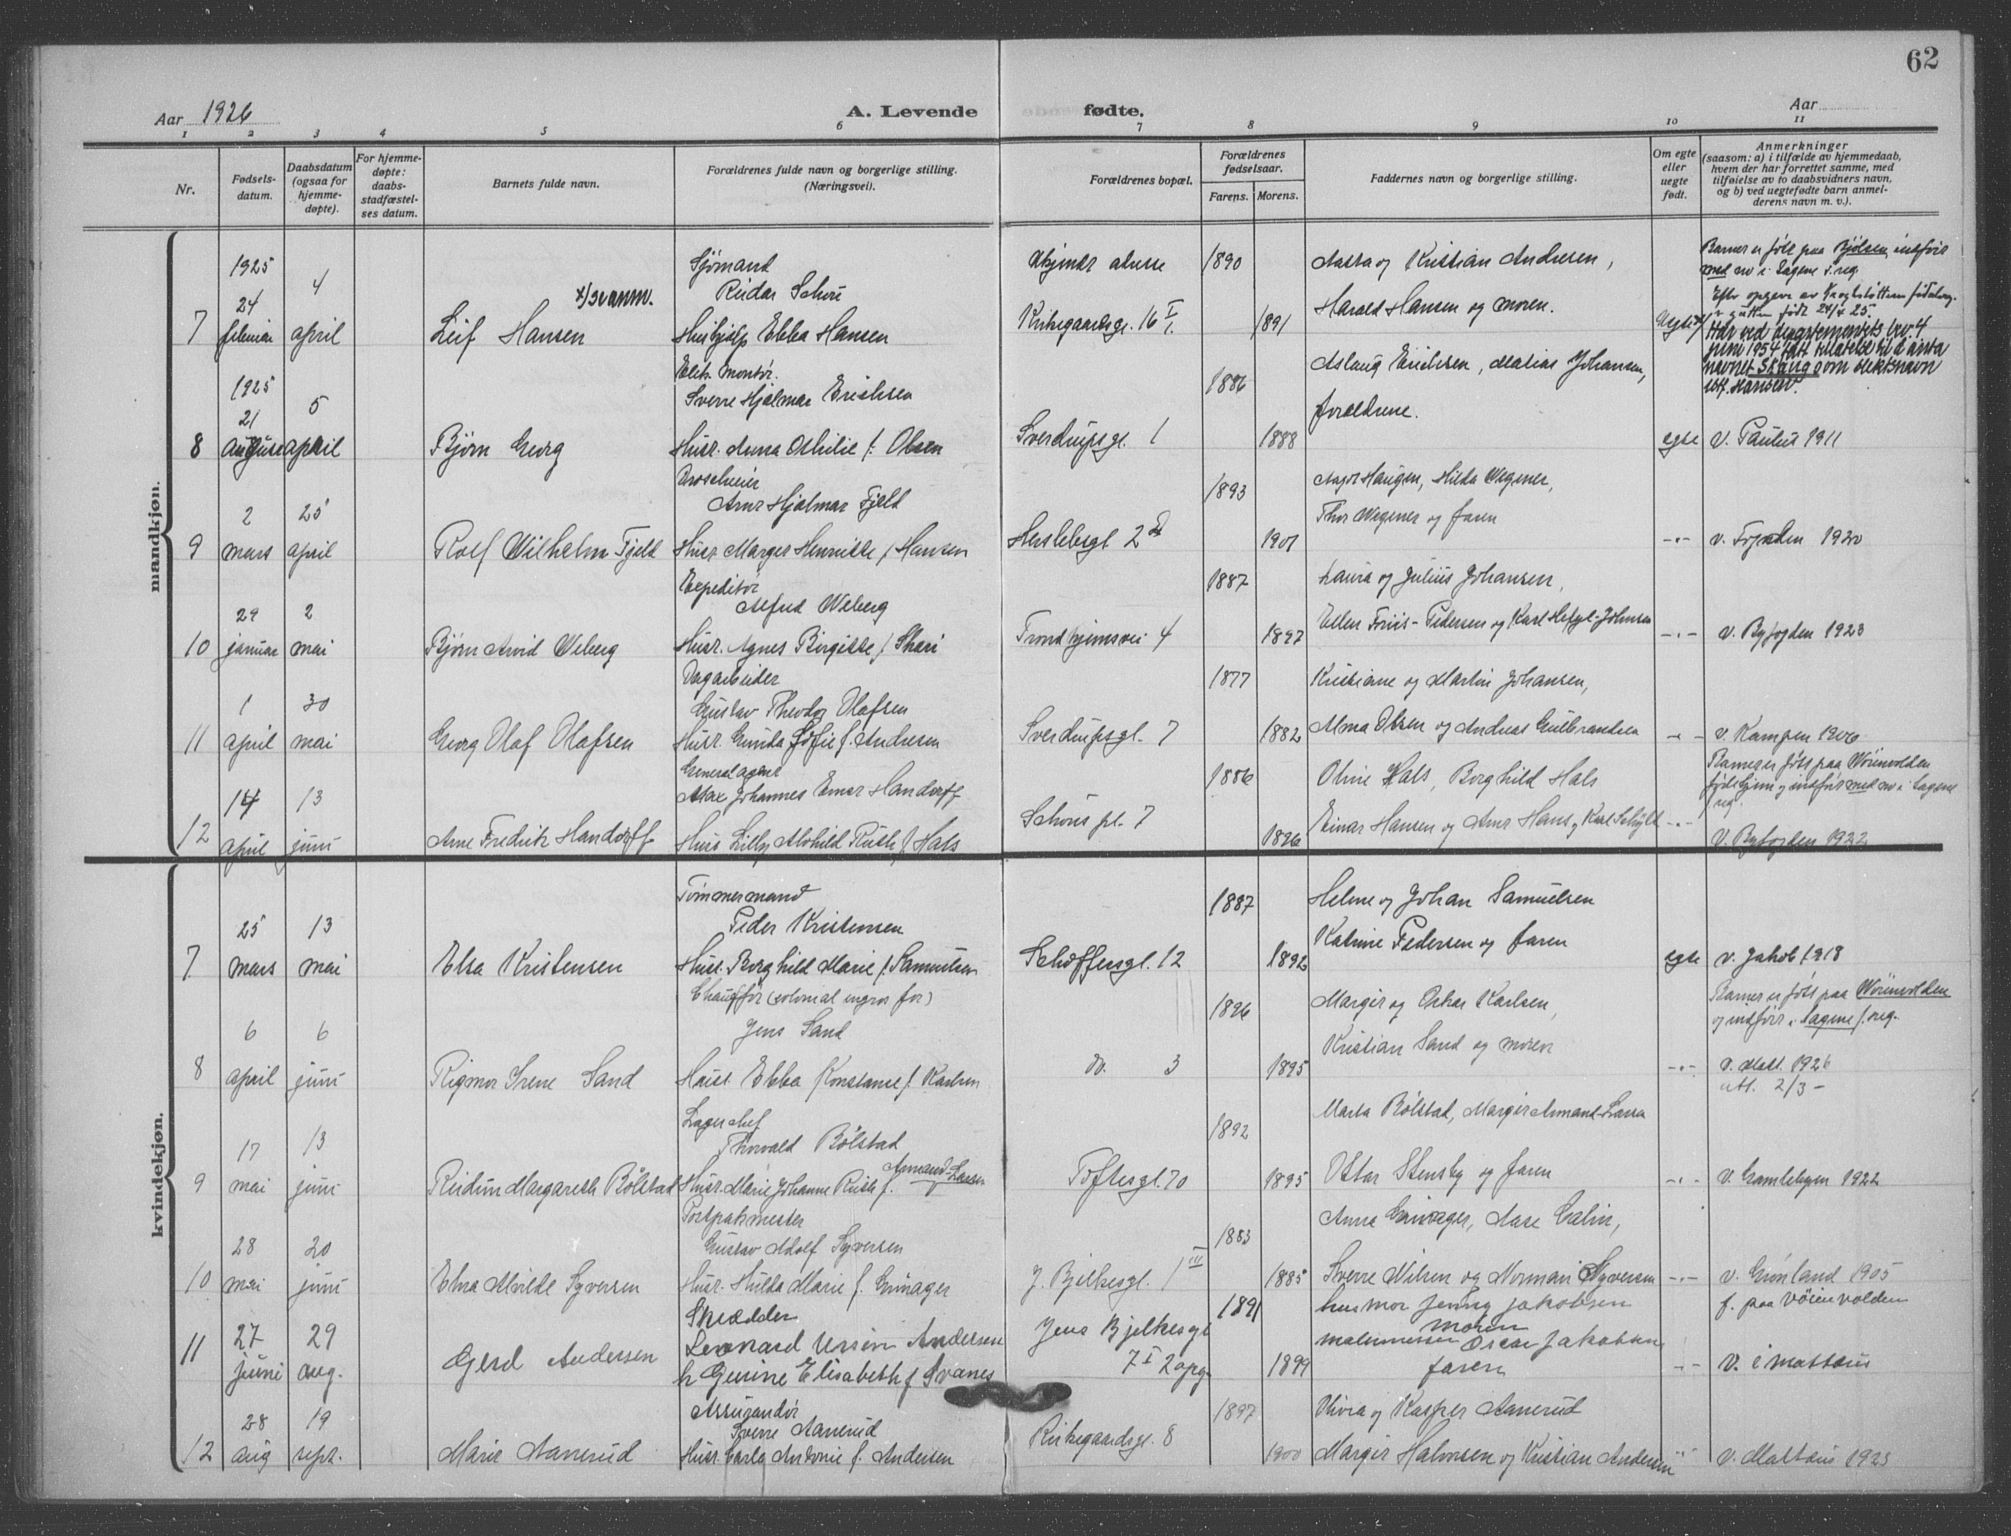 62
Aar 1926
A. Levende
fødte.
Aar
1 2 3 4 5 6 7 8 9 10 11
Nr.
Fødsels-
datum.
Daabsdatum
(ogsaa for
hjemme-
døpte).
For hjemme-
døpte:
daabs-
stadfæstel-
ses datum.
Barnets fulde navn.
Forældrenes fulde navn og borgerlige stilling.
(Næringsvei).
Forældrenes bopæl.
Forældrenes
fødselsaar.
Farens. Morens.
Faddernes navn og borgerlige stilling.
Om egte
eller
uegte
født.
Anmerkninger
(saasom: a) i tilfælde av hjemmedaab,
hvem der har forrettet samme, med
tilføielse av to daabsvidners navn,
og b) ved uegtefødte barn anmel-
derens navn m. v.).
mandkjøn.
7
1925
24
februar
4
april
x/se anm.
Leif Hansen
Sjømand
Reidar Schou
Hushjelp Ebba Hansen
Kirkegaardsg. 16 I
1890
1891
Aasta og Kristian Andresen,
Harald Hansen og moren.
Uegte
Barnet er født paa Bjølsen, indført
med nr i Sagene f. reg.
født 24/4 25.
Har ved departementets brv. 4
juni 1954 fått tillatelse til å anta
navnet Skaug som slektsnavn
istf. Hansen.
8
1925
21
august
5
april
Bjørn Georg
Elek. montør.
Sverre Hjalmar Erichsen
Husr. Anna Othilie f. Olsen
Sverdrupsg. 1
1886
1888
Aslaug Erichsen, Matias Johansen,
forældrene.
egte
v. Paulus 1911
9
2
mars
25
april
Rolf Wilhelm Fjeld
Droscheeier
Arne Hjalmar Fjeld
Husr. Margit Henriette f. Hansen
Herslebsgt 2 d
1893
1901
Aagot Haugen, Hilda Wegener,
Thor Wegener og faren
-"-
v. Fogden 1920
10
29
januar
2
mai
Bjørn Arvid Weberg
Expeditør
Alfred Weberg
Husr. Agnes Birgitte f. Skari
Trondhjemsvei 4
1887
1897
Laura og Julius Johansen,
Ellen Friis-Pedersen og Karl Johnsen
-"-
v. Byfogden 1923
11
1
april
30
mai
Georg Olaf Olafsen
Dagarbeider
Gustav Theodor Olafsen
Husr. Gunda Sofie f. Andresen
Sverdrupsgt. 7
1877
1882
Kristiane og Martin Johansen,
Alma Olsen og Andreas Gulbrandsen
- " -
v. Kampen 1906
12
14
april
13
juni
Arne Fredrik Handorff
Generalagent
Max Johannes Emar Handorff
Husr Lilly Alvhild Ruth f. Hals
Schous pl. 7
1886
1896
Oline Hals, Borghild Hals
Einar Hansen og Arne Hans, Karl Schyld
-"-
Barnet er født paa Vøienvolden
fødehjem og indført med nr i Sagene
reg
v. Byfogden 1922
kvindekjøn.
7
25
mars
13
mai
Elsa Kristensen
Tømmermand
Peder Kristensen
Husr. Borghild Marie f. Samuelsen
Schøffersgt. 12
1887
1892
Helene og Johan Samuelsen
Katrine Pedersen og faren
egte
v. Jakob 1918
8
6
april
6
juni
Rigmor Irene Sand
Chauffør (kolonial engros for)
Jens Sand
Husr. Ebba Konstanse f. Karlsen
do. 3
1896
1895
Margit og Oskar Karlsen,
Kristian Sand og moren
-"-
Barnet er født paa Vøienvolden
og indført i Sagene f. reg.
v. Matt. 1926
utt. 2/3 -
9
17
mai
13
juni
Reidun Margareth Bølstad
Lagerchef
Thorvald Bølstad
Husr. Marie Johanne Ruth f. Amand-Larsen
Toftesgt. 70
1892
1895
Marta Bølstad, Margit Amand-Larsen
Ottar Stensby og faren
-"-
v. Gamlebyen 1922
10
28
mai
20
juni
Elna Alvilde Syversen
Postpakmester
Gustav Adolf Syversen
Husr. Hulda Marie f. Grinager
J. Bjelkesgt. 1 III
1883
1885
Anna Grinager, Aase Calin,
Sverre Nilsen og Norman Syversen
-"-
v. Grønland 1905
11
27
juni
29
aug.
Gerd Andersen
Skrædder
Leonard Ursin Andersen
h Gurine Elisabeth f. Svanes
Jens Bjelkesgt
7 I 2 opg
1891
1899
husmor Jenny Jakobsen
moren
malermester Oscar Jakobsen
faren
-"-
f. paa Vøienvolden
v. i Mattæus
12
28
aug
19
sept.
Marie Aanerud
Assurandør
Sverre Aanerud
Husr. Carla Antonie f. Andersen
Kirkegaardsg. 8
1897
1900
Olivia og Kasper Aanerud
Margit Halvorsen og Kristian Andersen
"
v. Mattæus 1925